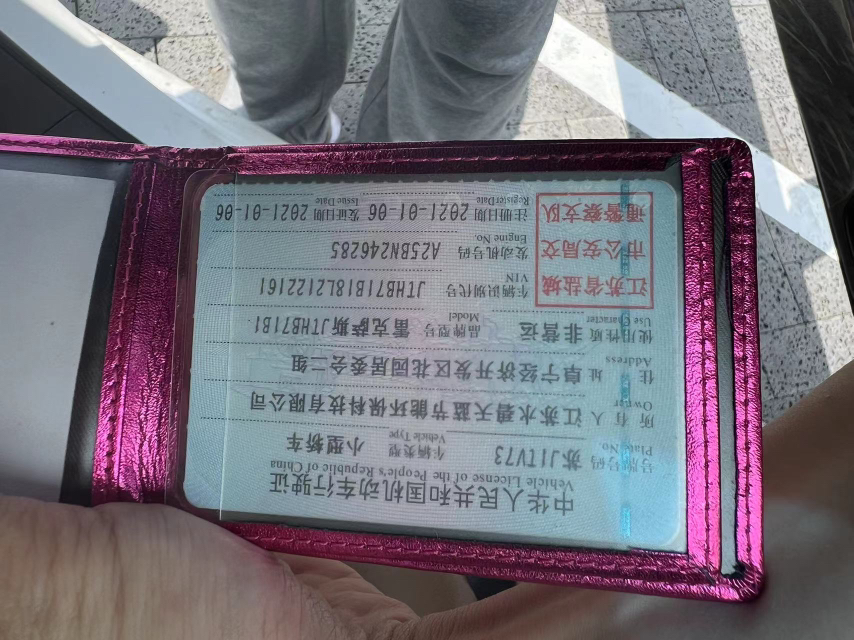 中华人民共和国机动车行驶证
Vehicle License of the People's Republic of China
号牌号码 苏J1TV73 车辆类型 小型轿车
Plate No. Vehicle Type
所有人 江苏水碧天蓝节能环保科技有限公司
Owner
住址 阜宁经济开发区花园居委会二组
Address
使用性质 非营运 品牌型号 雷克萨斯JTHB71B1
Use Character Model
江苏省盐城
市公安局交
通警察支队
车辆识别代号 JTHB71B18L2122161
VIN
发动机号码 A25BN246285
Engine No.
注册日期 2021-01-06 发证日期 2021-01-06
Register Date Issue Date